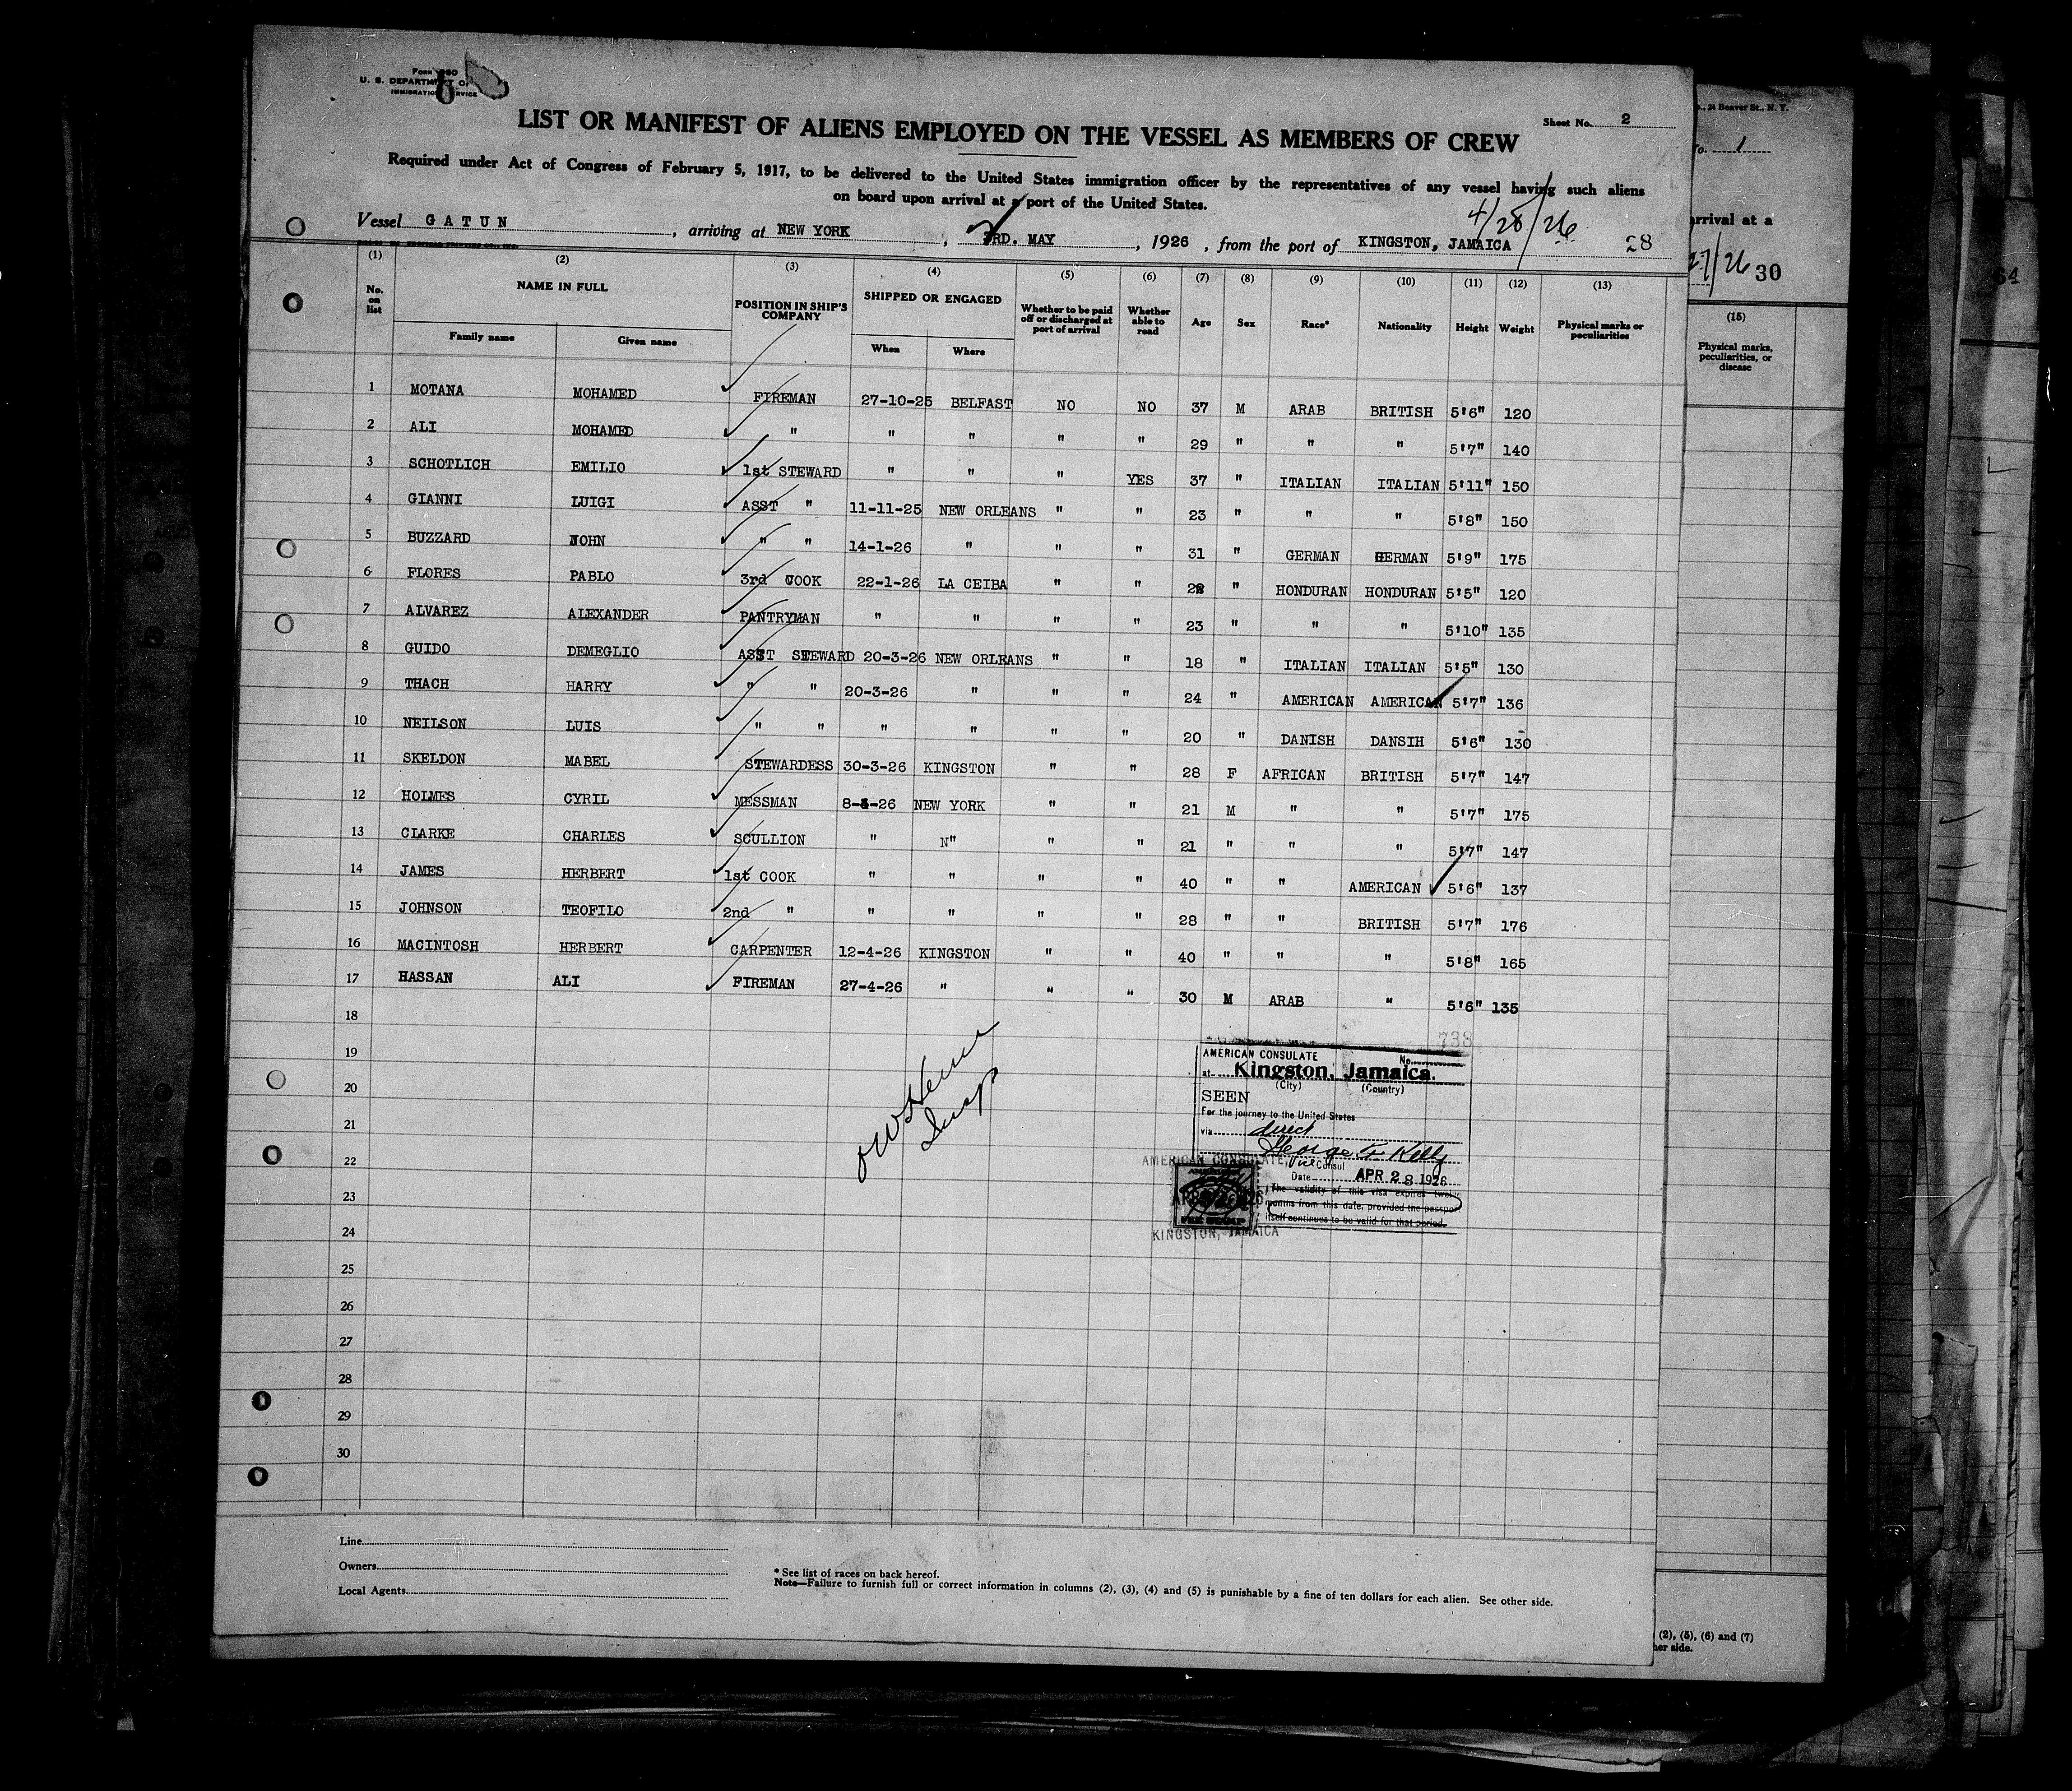 Form 680
U. S. DEPARTMENT OF
IMMIGRATION SERVICE
Sheet No. 2
LIST OR MANIFEST OF ALIENS EMPLOYED ON THE VESSEL AS MEMBERS OF CREW
Required under Act of Congress of February 5, 1917, to be delivered to the United States immigration officer by the representatives of any vessel having such aliens
on board upon arrival at a port of the United States.
4/28/26
Vessel GATUN, arriving at NEW YORK, 3RD. MAY, 1926, from the port of KINGSTON, JAMAICA 28
(1) (2) (3) (4) (5) (6) (7) (8) (9) (10) (11) (12) (13)
No. on list NAME IN FULL POSITION IN SHIP'S COMPANY SHIPPED OR ENGAGED Whether to be paid off or discharged at port of arrival Whether able to read Age Sex Race* Nationality Height Weight Physical marks or peculiarities
Family name Given name When Where
1 MOTANA MOHAMED FIREMAN 27-10-25 BELFAST NO NO 37 M ARAB BRITISH 5'6" 120
2 ALI MOHAMED " " " " " 29 " " " 5'7" 140
3 SCHOTLICH EMILIO 1st STEWARD " " " YES 37 " ITALIAN ITALIAN 5'11" 150
4 GIANNI LUIGI ASST " 11-11-25 NEW ORLEANS " " 23 " " " 5'8" 150
5 BUZZARD JOHN " " 14-1-26 " " " 31 " GERMAN GERMAN 5'9" 175
6 FLORES PABLO 3rd COOK 22-1-26 LA CEIBA " " 22 " HONDURAN HONDURAN 5'5" 120
7 ALVAREZ ALEXANDER PANTRYMAN " " " " 23 " " " 5'10" 135
8 GUIDO DEMEGLIO ASST STEWARD 20-3-26 NEW ORLEANS " " 18 " ITALIAN ITALIAN 5'5" 130
9 THACH HARRY " " 20-3-26 " " " 24 " AMERICAN AMERICAN 5'7" 136
10 NEILSON LUIS " " " " " " 20 " DANISH DANSIH 5'6" 130
11 SKELDON MABEL STEWARDESS 30-3-26 KINGSTON " " 28 F AFRICAN BRITISH 5'7" 147
12 HOLMES CYRIL MESSMAN 8-4-26 NEW YORK " " 21 M " " 5'7" 175
13 CLARKE CHARLES SCULLION " N" " " 21 " " " 5'7" 147
14 JAMES HERBERT 1st COOK " " " " 40 " " AMERICAN 5'6" 137
15 JOHNSON TEOFILO 2nd " " " " " 28 " " BRITISH 5'7" 176
16 MACINTOSH HERBERT CARPENTER 12-4-26 KINGSTON " " 40 " " " 5'8" 165
17 HASSAN ALI FIREMAN 27-4-26 " " " 30 M ARAB " 5'6" 135
18
19
20
21
22
23
24
25
26
27
28
29
30
Insp
738
AMERICAN CONSULATE No.
at Kingston, Jamaica.
(City) (Country)
SEEN
For the journey to the United States
via direct
George F. Kelly
Vice Consul
Date APR 28 1926
The validity of this visa expires twelve
months from this date, provided the passport
itself continues to be valid for that period.
AMERICAN CONSULATE
FEE STAMP
KINGSTON, JAMAICA
Line
Owners
Local Agents
* See list of races on back hereof.
Note—Failure to furnish full or correct information in columns (2), (3), (4) and (5) is punishable by a fine of ten dollars for each alien. See other side.
24 Beaver St., N. Y.
No. 1
arrival at a
27/26 30
(15)
Physical marks, peculiarities, or disease
(2), (5), (6) and (7)
her side.